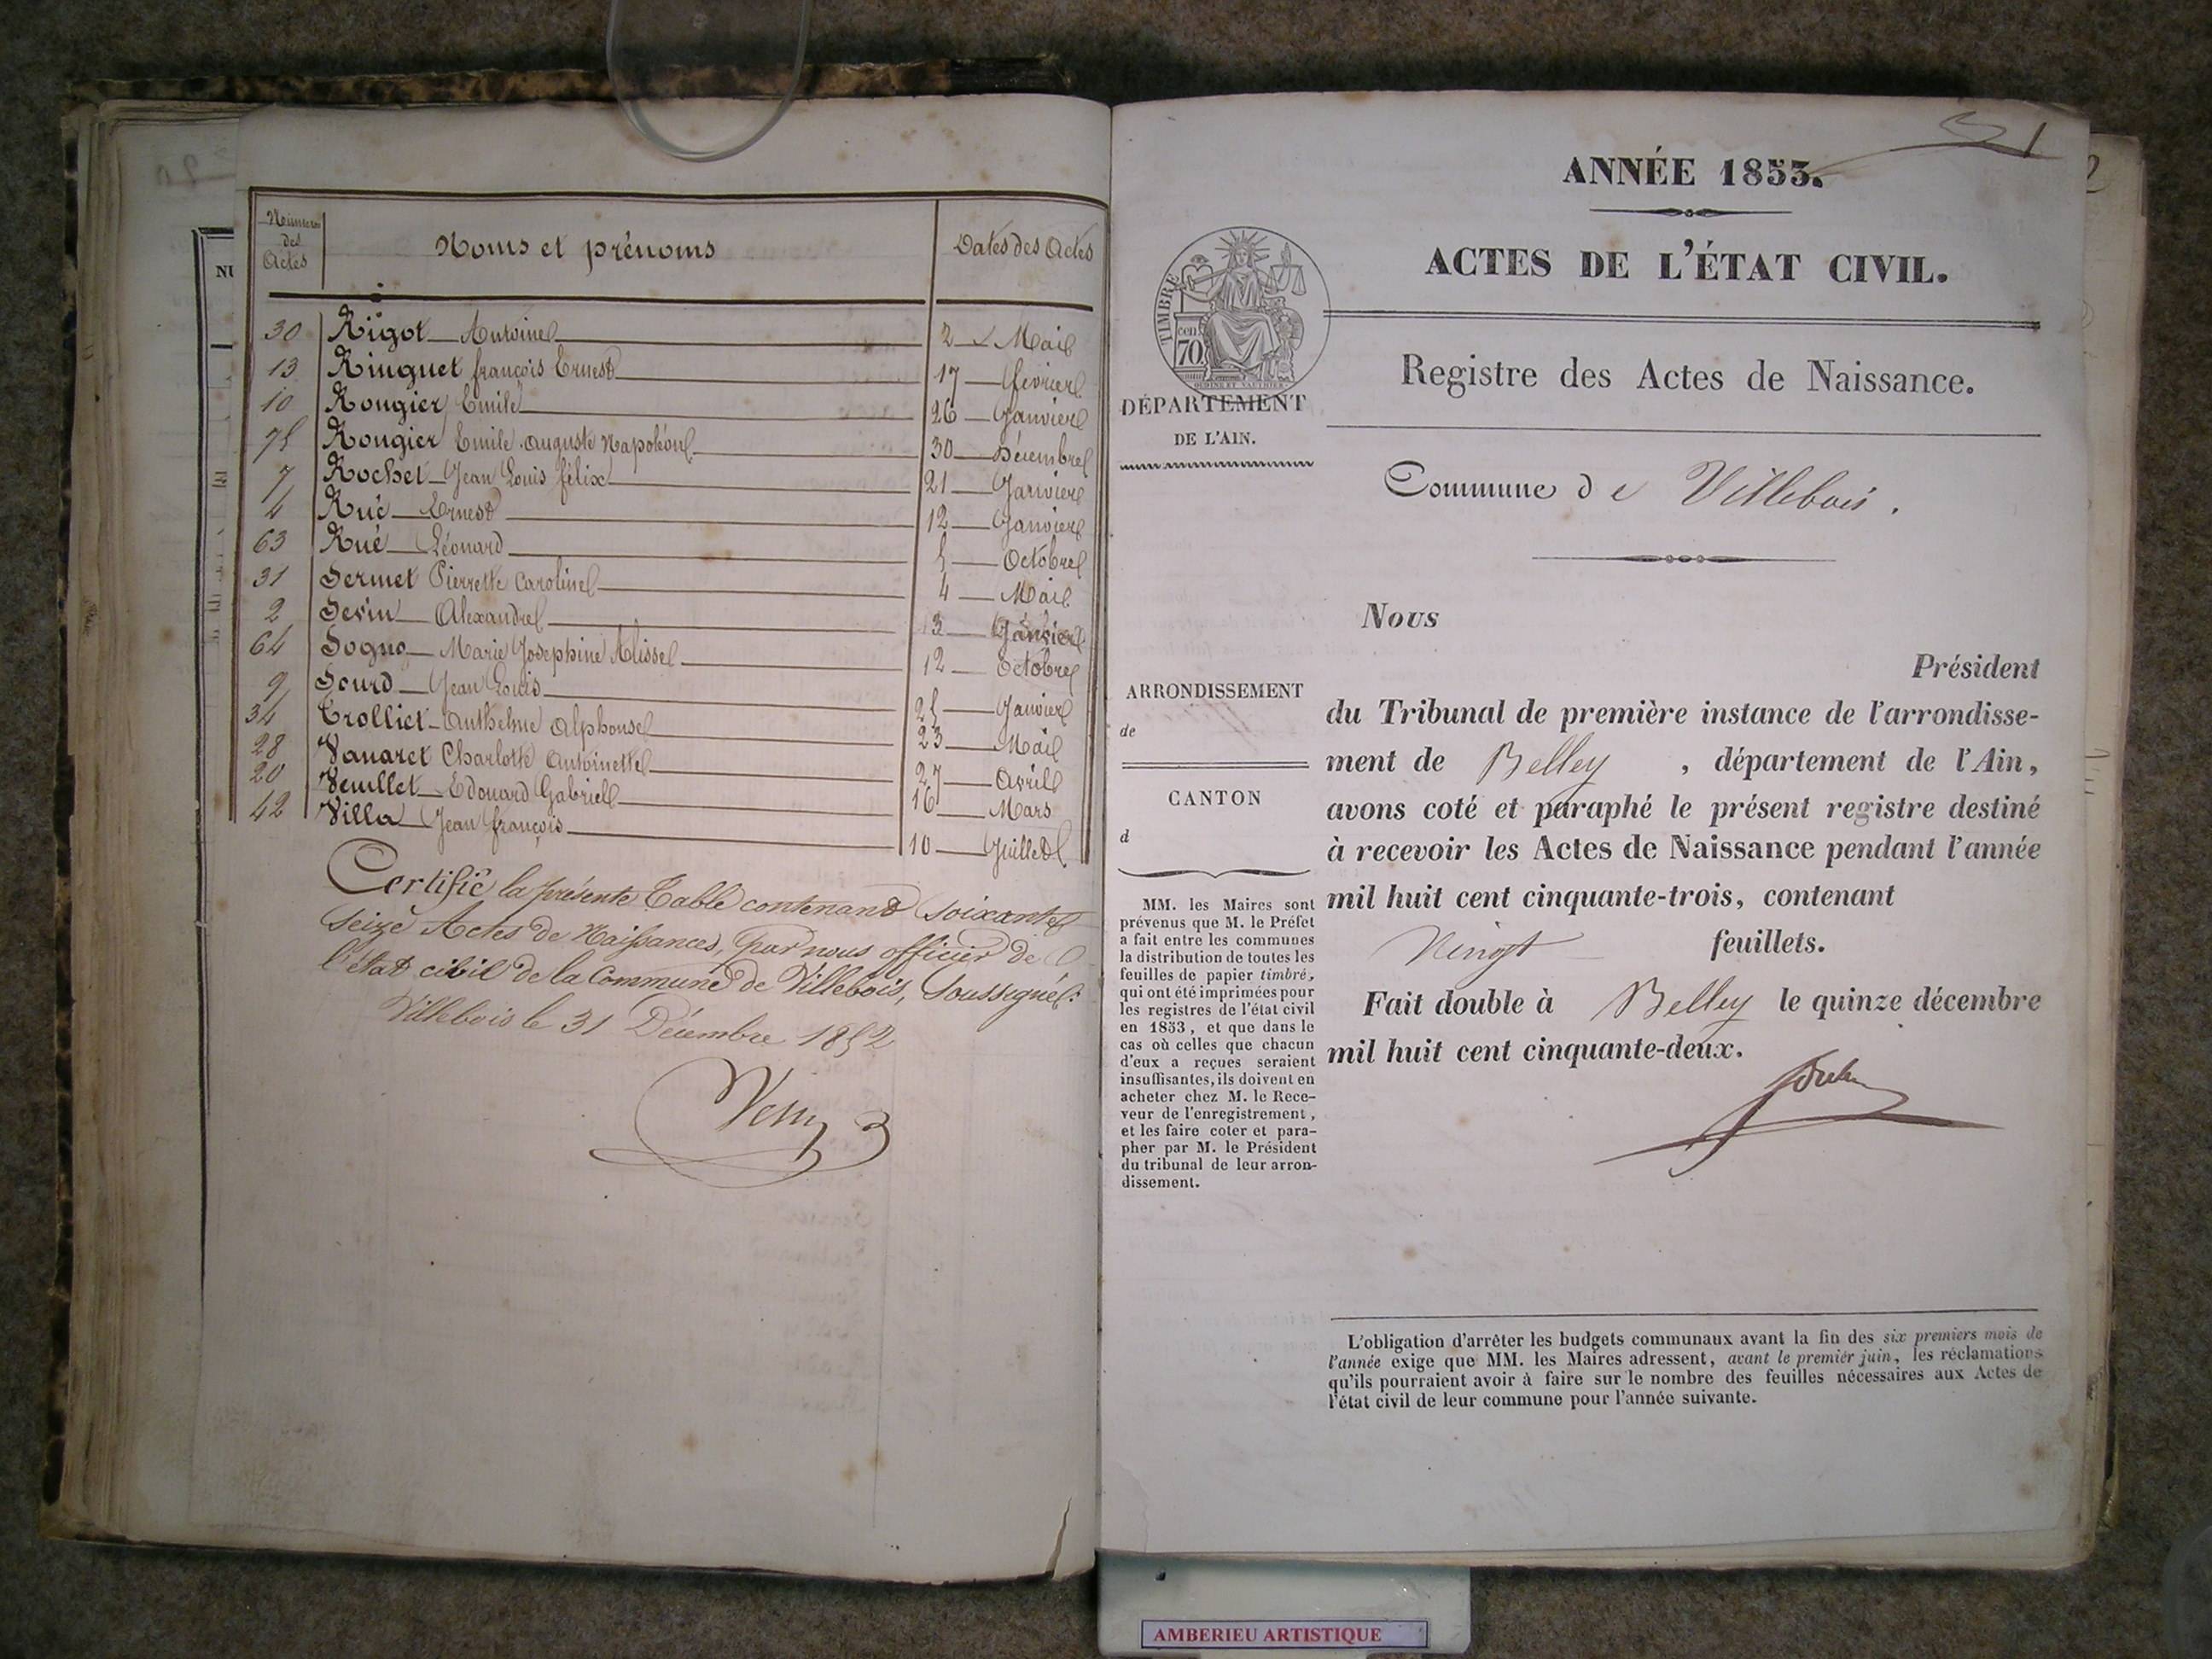 Numéros des Actes
Noms et prénoms
Dates des Actes
30 Rigot Antoine 2 Mai
13 Ringuet françois Ernest 17 fevrier
10 Rougier Emile 26 Janvier
75 Rougier Emile Auguste Napoléon 30 Décembre
7 Rochet Jean Louis félix 21 Janvier
4 Rué Ernest 12 Janvier
63 Rué Léonard 5 Octobre
31 Sermet Pierrette Caroline 4 Mai
2 Sevin Alexandre 3 Janvier
64 Sogno Marie Josephine Alisse 12 Octobre
9 Sourd Jean Louis 25 Janvier
34 Trolliet Anthelme Alphonse 23 Mai
28 Vanaret Charlotte Antoinette 27 Avril
20 Veuillet Edouard Gabriel 16 Mars
42 Villa Jean françois 10 Juillet
Certifié la présente Table contenant soixante
seize Actes de Naissances, par nous officier de
l'état civil de la Commune de Villebois, Soussigné:
Villebois le 31 Décembre 1852
NU
1
ANNÉE 1853.
ACTES DE L'ÉTAT CIVIL.
TIMBRE
cen
70
DÉPARTEMENT
DE L'AIN.
Registre des Actes de Naissance.
Commune de Villebois.
Nous
Président
du Tribunal de première instance de l'arrondisse-
ment de Belley, département de l'Ain,
avons coté et paraphé le présent registre destiné
à recevoir les Actes de Naissance pendant l'année
mil huit cent cinquante-trois, contenant
Vingt feuillets.
Fait double à Belley le quinze décembre
mil huit cent cinquante-deux.
ARRONDISSEMENT
de
CANTON
d
MM. les Maires sont
prévenus que M. le Préfet
a fait entre les communes
la distribution de toutes les
feuilles de papier timbré,
qui ont été imprimées pour
les registres de l'état civil
en 1853, et que dans le
cas où celles que chacun
d'eux a reçues seraient
insuffisantes, ils doivent en
acheter chez M. le Rece-
veur de l'enregistrement,
et les faire coter et para-
pher par M. le Président
du tribunal de leur arron-
dissement.
L'obligation d'arrêter les budgets communaux avant la fin des six premiers mois de
l'année exige que MM. les Maires adressent, avant le premier juin, les réclamations
qu'ils pourraient avoir à faire sur le nombre des feuilles nécessaires aux Actes de
l'état civil de leur commune pour l'année suivante.
AMBERIEU ARTISTIQUE